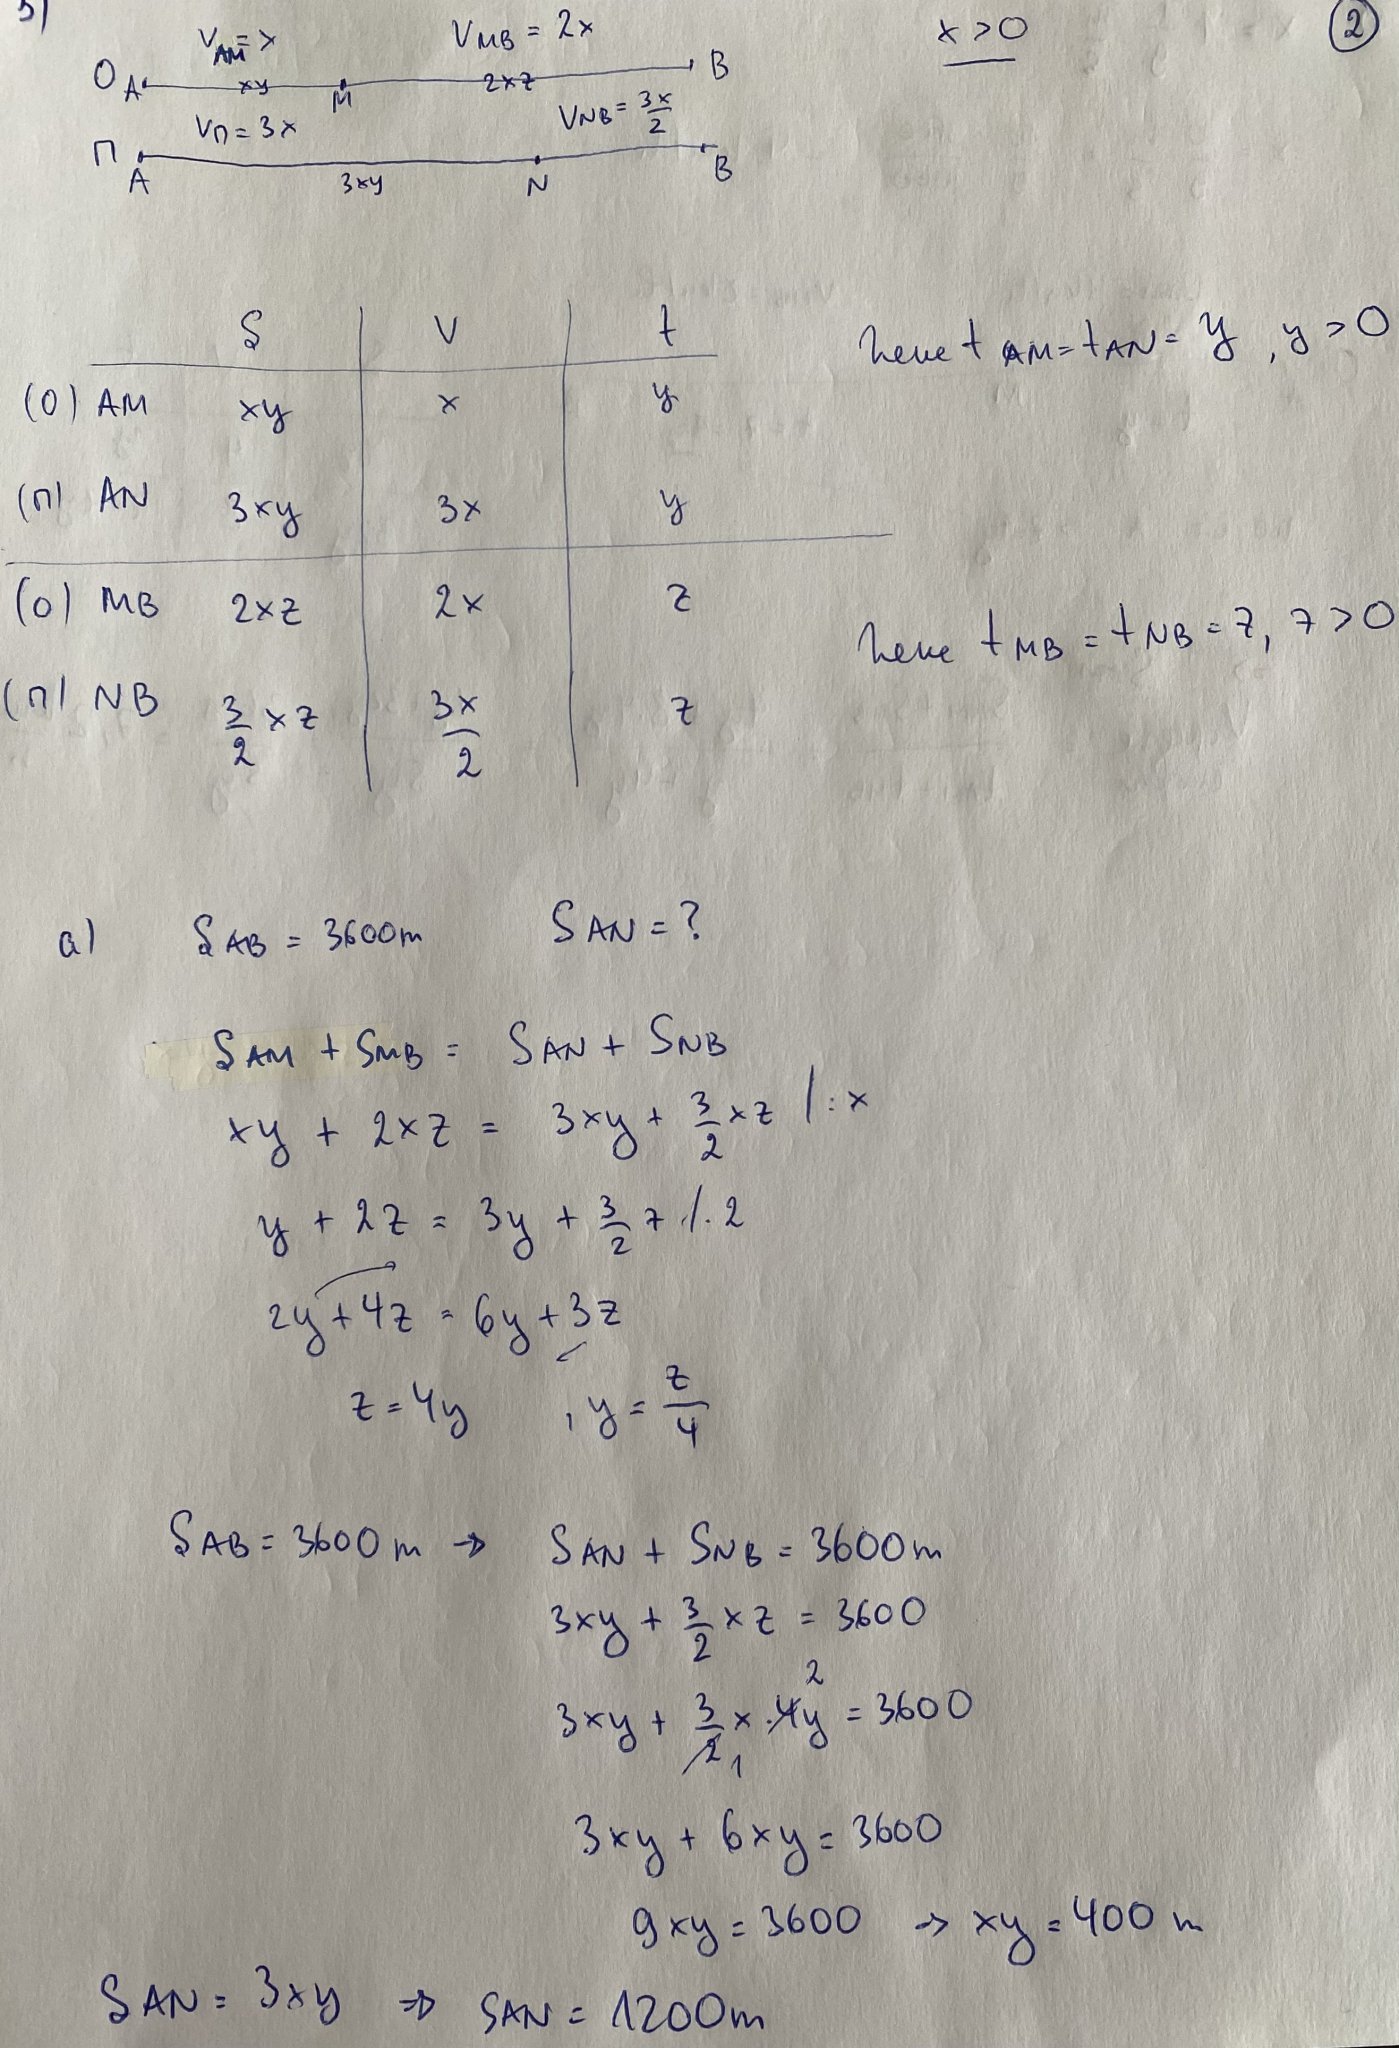 3)
V_AM = x
V_MB = 2x
x > 0
2
O A xy M 2xz B
V_П = 3x
V_NB = 3x/2
П A 3xy N B
S V t
(O) AM xy x y
нека t_AM = t_AN = y, y > 0
(П) AN 3xy 3x y
(O) MB 2xz 2x z
нека t_MB = t_NB = z, z > 0
(П) NB 3/2 xz 3x/2 z
a) S_AB = 3600m S_AN = ?
S_AM + S_MB = S_AN + S_NB
xy + 2xz = 3xy + 3/2 xz /:x
y + 2z = 3y + 3/2 z /.2
2y + 4z = 6y + 3z
z = 4y , y = z/4
S_AB = 3600m → S_AN + S_NB = 3600m
3xy + 3/2 xz = 3600
2
3xy + 3/2 x . 4y = 3600
1
3xy + 6xy = 3600
9xy = 3600 → xy = 400 m
S_AN = 3xy ⇒ S_AN = 1200m